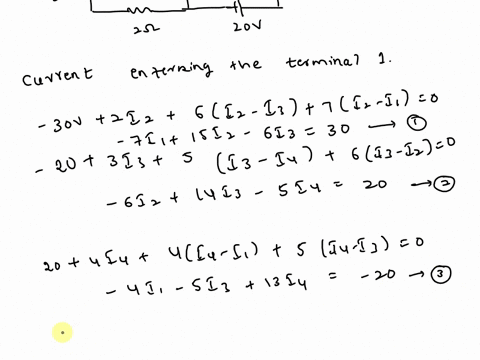 2Ω 20V
Current entering the terminal 1.
- 30V + 2I2 + 6(I2-I3) + 7(I2-I1) = 0
- 7I1 + 15I2 - 6I3 = 30 → ①
- 20 + 3I3 + 5 (I3-I4) + 6(I3-I2) = 0
- 6I2 + 14I3 - 5I4 = 20 → ②
20 + 4I4 + 4(I4-I1) + 5 (I4-I3) = 0
- 4I1 - 5I3 + 13I4 = -20 → ③